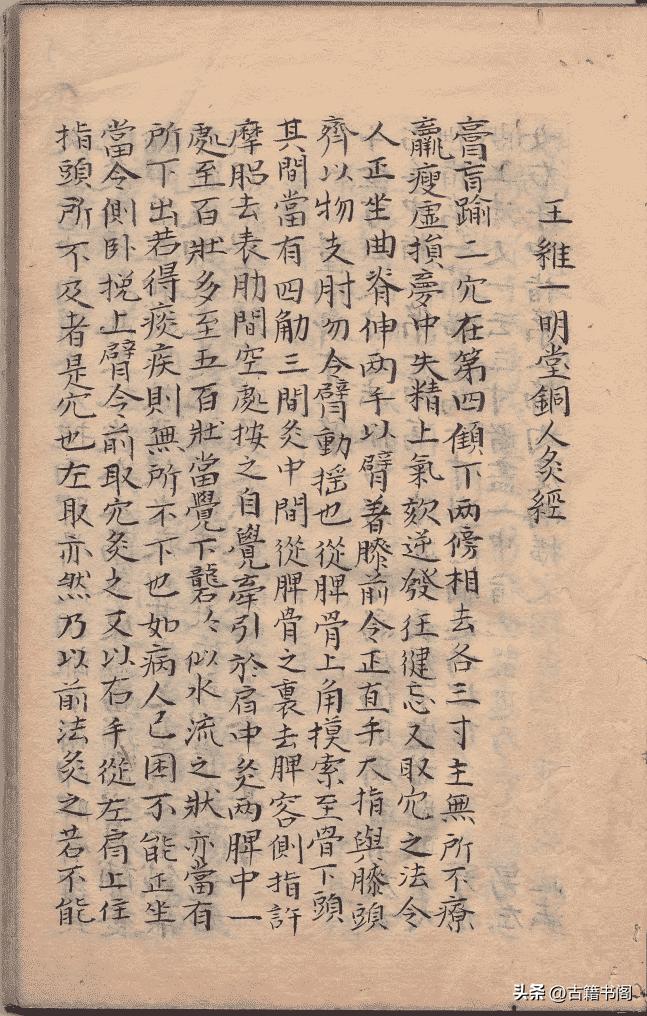 王維一明堂銅人灸經
膏肓踰二穴在第四顀下两傍相去各三寸主無所不療
羸瘦虛損夢中失精上氣欬逆發狂健忘又取穴之法令
人正坐曲脊伸两手以臂著膝前令正直手大指與膝頭
齊以物支肘勿令臂動揺也從脾骨上角摸索至骨下頭
其間當有四肋三間灸中間從脾骨之裏去脾容側指許
摩去表肋間空處按之自覺牽引於肩中灸两脾中一
處至百壯多至五百壯當覺下礲々似水流之狀亦當有
所下出若得痰疾則無所不下也如病人已困不能正坐
當令側卧挽上臂令前取穴灸之又以右手從左肩上住
指頭所不及者是穴也左取亦然乃以前法灸之若不能
头条 @古籍书阁